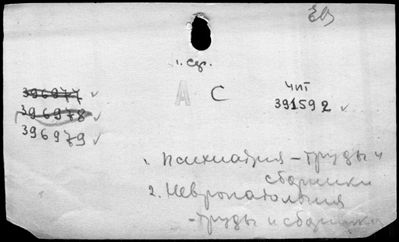 1. Сер.
А С
чит
391592
396977
396978
396979
1. Психиатрия - труды и
сборники
2. Невропатология
- труды и сборники